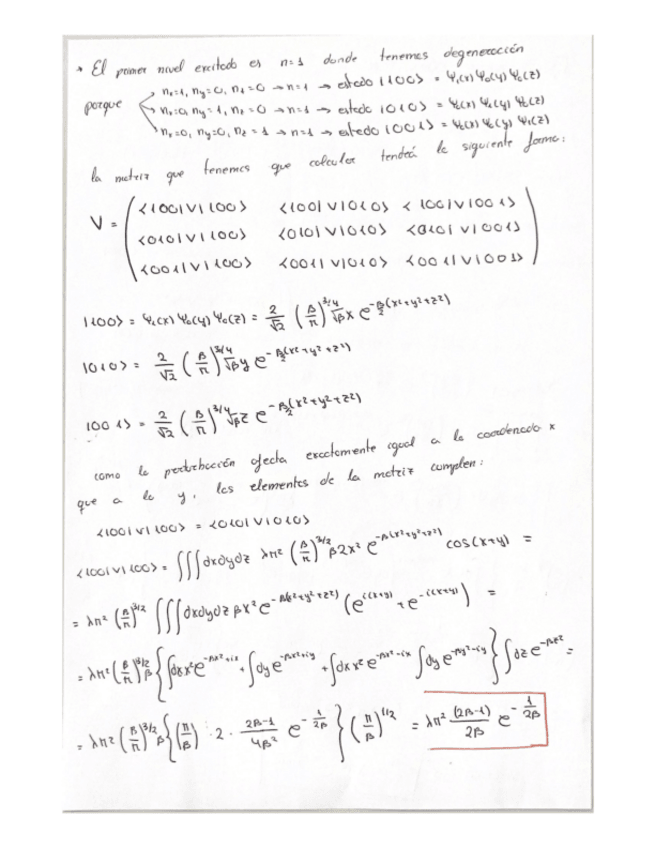 * El primer nivel excitado es n=1 donde tenemos degeneración
porque
nₓ=1, ny=0, nz=0 → n=1 → estado |100> = Ψ₁(x) Ψ₀(y) Ψ₀(z)
nₓ=0, ny=1, nz=0 → n=1 → estado |010> = Ψ₀(x) Ψ₁(y) Ψ₀(z)
nₓ=0, ny=0, nz=1 → n=1 → estado |001> = Ψ₀(x) Ψ₀(y) Ψ₁(z)
la matriz que tenemos que calcular tendrá la siguiente forma:
V = ( <100|V|100> <100|V|010> <100|V|001>
<010|V|100> <010|V|010> <010|V|001>
<001|V|100> <001|V|010> <001|V|001> )
|100> = Ψ₁(x) Ψ₀(y) Ψ₀(z) = 2/√2 (β/π)^3/4 √β x e^-β/2(x²+y²+z²)
|010> = 2/√2 (β/π)^3/4 √β y e^-β/2(x²+y²+z²)
|001> = 2/√2 (β/π)^3/4 √β z e^-β/2(x²+y²+z²)
como la perturbación afecta exactamente igual a la coordenada x
que a la y, los elementos de la matriz cumplen:
<100|V|100> = <010|V|010>
<100|V|100> = ∭ dxdydz λπ² (β/π)^3/2 β2x² e^-β(x²+y²+z²) cos(x+y) =
= λπ² (β/π)^3/2 ∭ dxdydz βx² e^-β(x²+y²+z²) (e^i(x+y) + e^-i(x+y)) =
= λπ² (β/π)^3/2 β { ∫dx x² e^-βx²+ix · ∫dy e^-βy²+iy + ∫dx x² e^-βx²-ix ∫dy e^-βy²-iy } ∫dz e^-βz² =
= λπ² (β/π)^3/2 β { (π/β) · 2 · 2β-1/4β² e^-1/2β } (π/β)^1/2 = λπ² (2β-1)/2β e^-1/2β